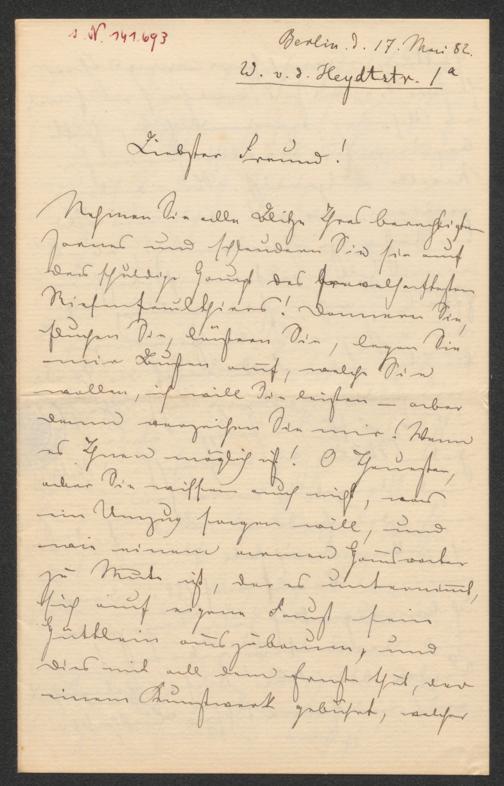 s. N. 141.693
Berlin. d. 17. Mai 82.
W. v. d. Heydtstr. 1a
Liebster Freund!
Nehmen Sie alle Blitze Ihres berechtigten
Zornes und schleudern Sie sie auf
das schuldige Haupt des frevelhaftesten
Riesenfaulthiers! Donnern Sie,
fluchen Sie, lästern Sie, legen Sie
mir Bußen auf, welche Sie
wollen, ich will Sie leisten — aber
dann verzeihen Sie mir! Wenn
es Ihnen möglich ist! O Theuerster,
aber Sie wissen auch nicht, was
ein Umzug sagen will, und
wie einem armen Hausvater
zu Mute ist, der es unternimmt,
sich auf eigene Faust sein
Hüttlein auszubauen, und
dies mit all dem Ernste thut, der
einem Kunstwerk gebührt, welcher